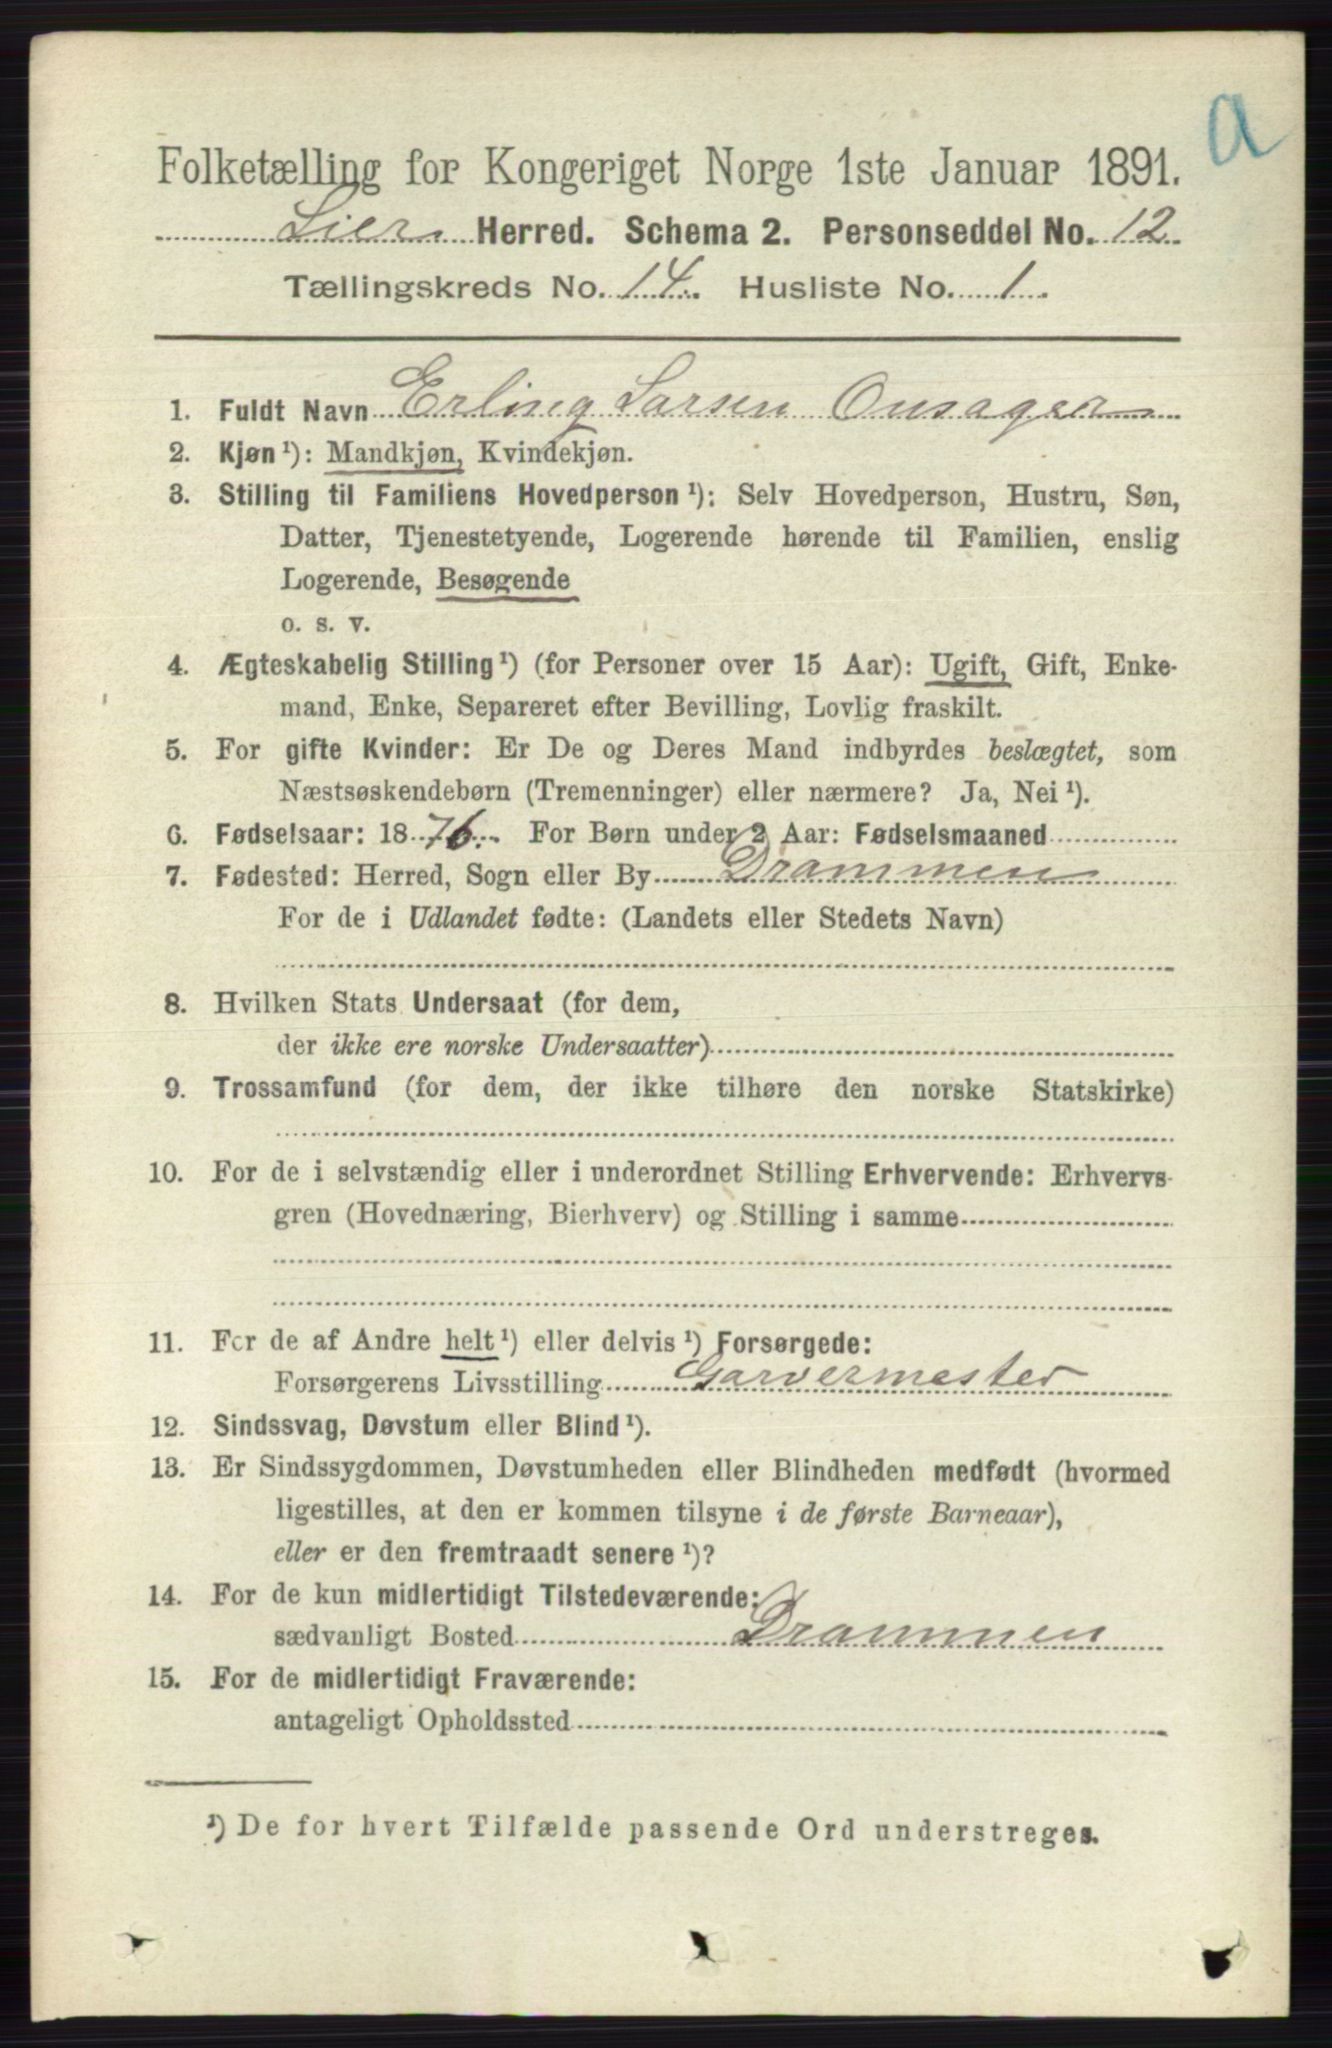 a
Folketælling for Kongeriget Norge 1ste Januar 1891.
Lier Herred. Schema 2. Personseddel No. 12
Tællingskreds No. 14. Husliste No. 1
1. Fuldt Navn Erling Larsen Onsager
2. Kjøn¹): Mandkjøn, Kvindekjøn.
3. Stilling til Familiens Hovedperson¹): Selv Hovedperson, Hustru, Søn,
Datter, Tjenestetyende, Logerende hørende til Familien, enslig
Logerende, Besøgende
o. s. v.
4. Ægteskabelig Stilling¹) (for Personer over 15 Aar): Ugift, Gift, Enke-
mand, Enke, Separeret efter Bevilling, Lovlig fraskilt.
5. For gifte Kvinder: Er De og Deres Mand indbyrdes beslægtet, som
Næstsøskendebørn (Tremenninger) eller nærmere? Ja, Nei¹).
6. Fødselsaar: 1876. For Børn under 2 Aar: Fødselsmaaned
7. Fødested: Herred, Sogn eller By Drammen
For de i Udlandet fødte: (Landets eller Stedets Navn)
8. Hvilken Stats Undersaat (for dem,
der ikke ere norske Undersaatter)
9. Trossamfund (for dem, der ikke tilhøre den norske Statskirke)
10. For de i selvstændig eller i underordnet Stilling Erhvervende: Erhvervs-
gren (Hovednæring, Bierhverv) og Stilling i samme
11. For de af Andre helt¹) eller delvis¹) Forsørgede:
Forsørgerens Livsstilling Garvermester
12. Sindssvag, Døvstum eller Blind¹).
13. Er Sindssygdommen, Døvstumheden eller Blindheden medfødt (hvormed
ligestilles, at den er kommen tilsyne i de første Barneaar),
eller er den fremtraadt senere¹)?
14. For de kun midlertidigt Tilstedeværende:
sædvanligt Bosted Drammen
15. For de midlertidigt Fraværende:
antageligt Opholdssted
¹) De for hvert Tilfælde passende Ord understreges.